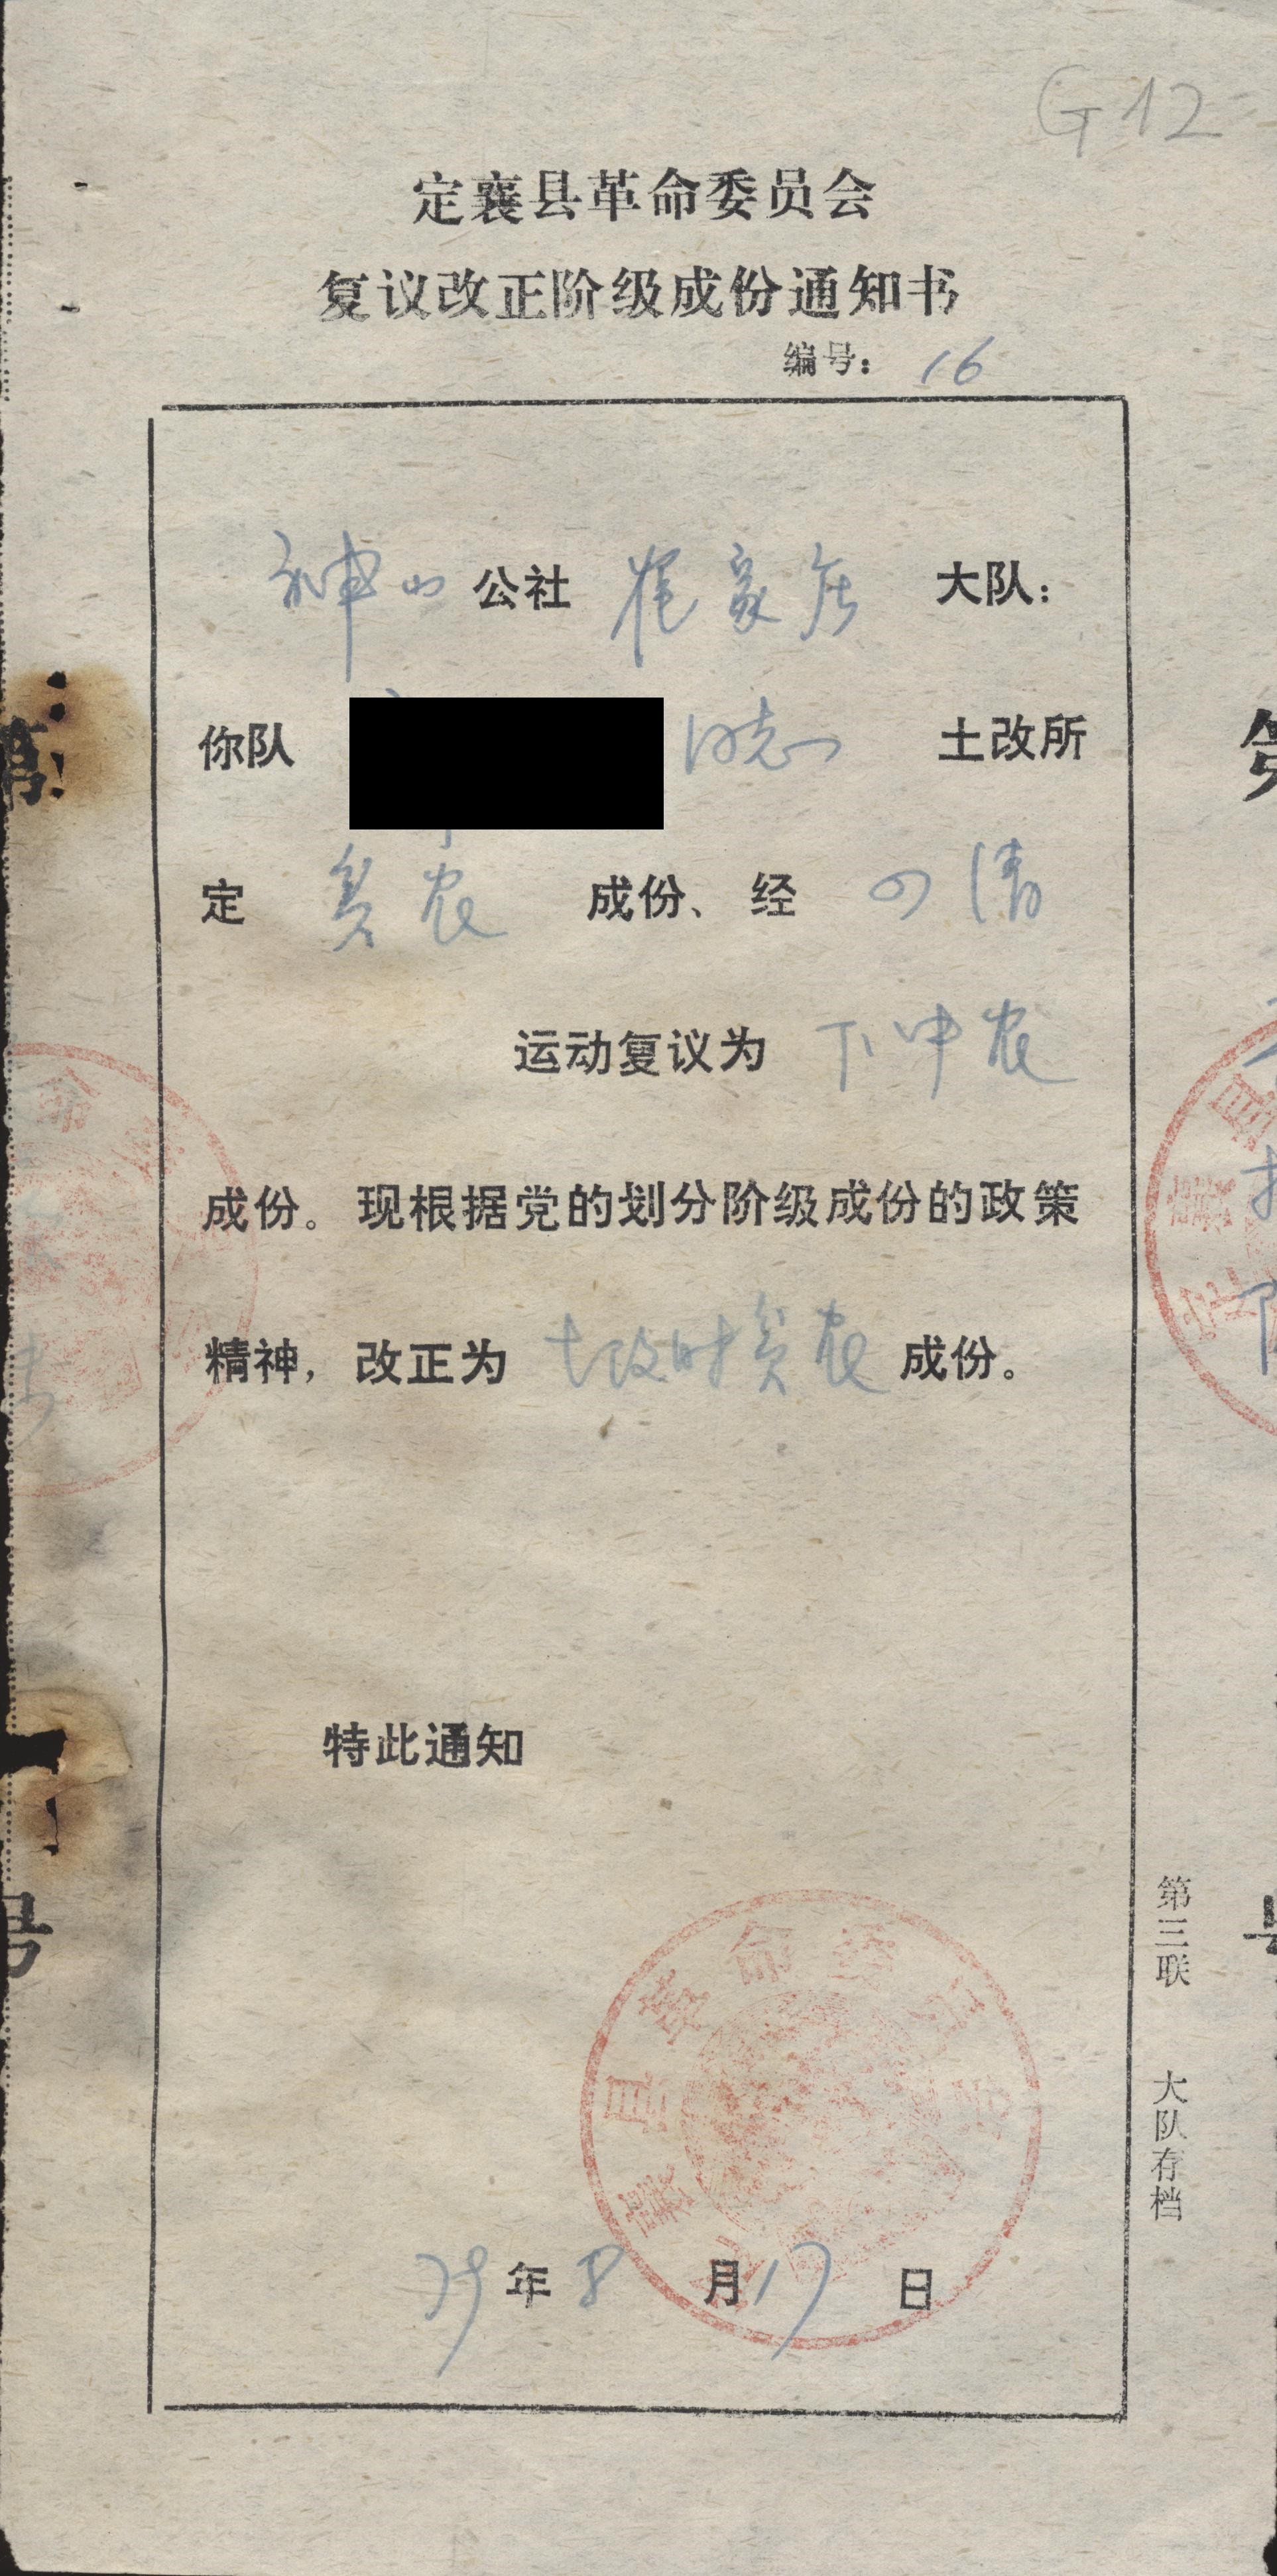 G12
定襄县革命委员会
复议改正阶级成份通知书
编号：16
神山公社 崔家庄 大队：
你队 同志 土改所
定 贫农 成份、经 四清
运动复议为 下中农
成份。现根据党的划分阶级成份的政策
精神，改正为 土改时贫农 成份。
特此通知
79年8月17日
第三联 大队存档
第
号
襄县革命委员会